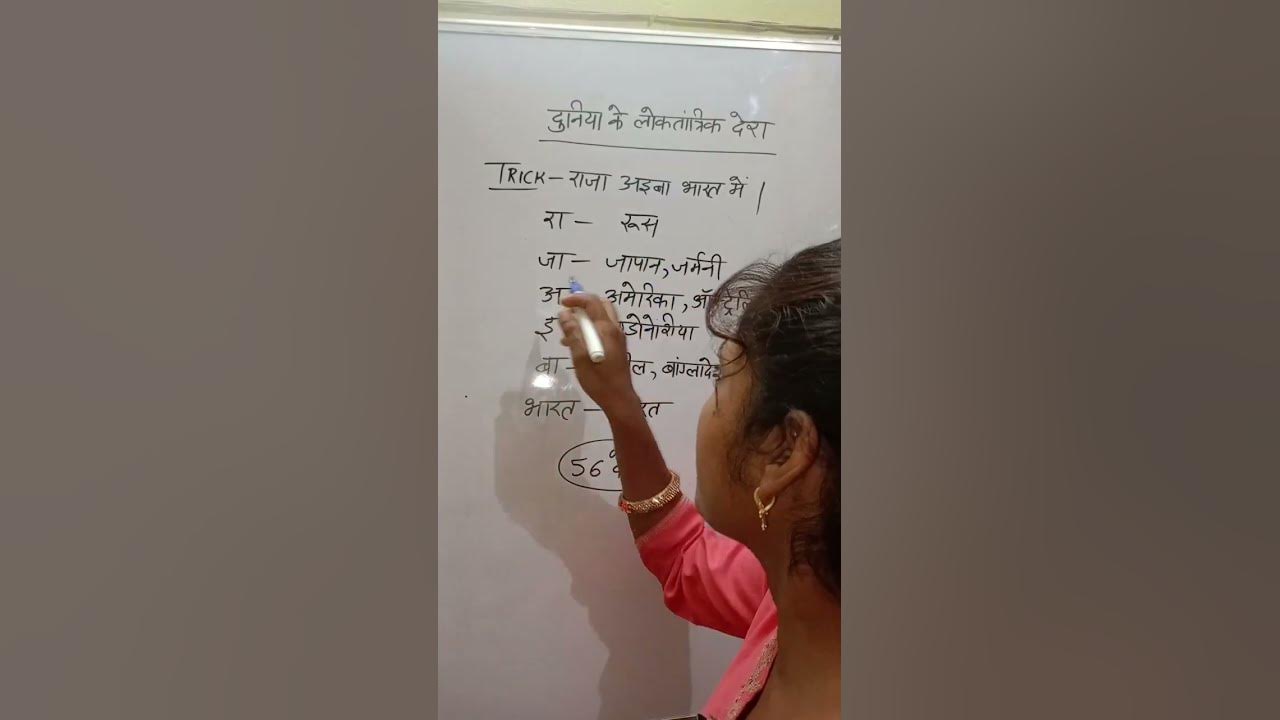 दुनिया के लोकतांत्रिक देश
TRICK – राजा अइबा भारत में |
रा – रूस
जा – जापान, जर्मनी
अ अमेरिका,
इ
बा –
भारत –
56